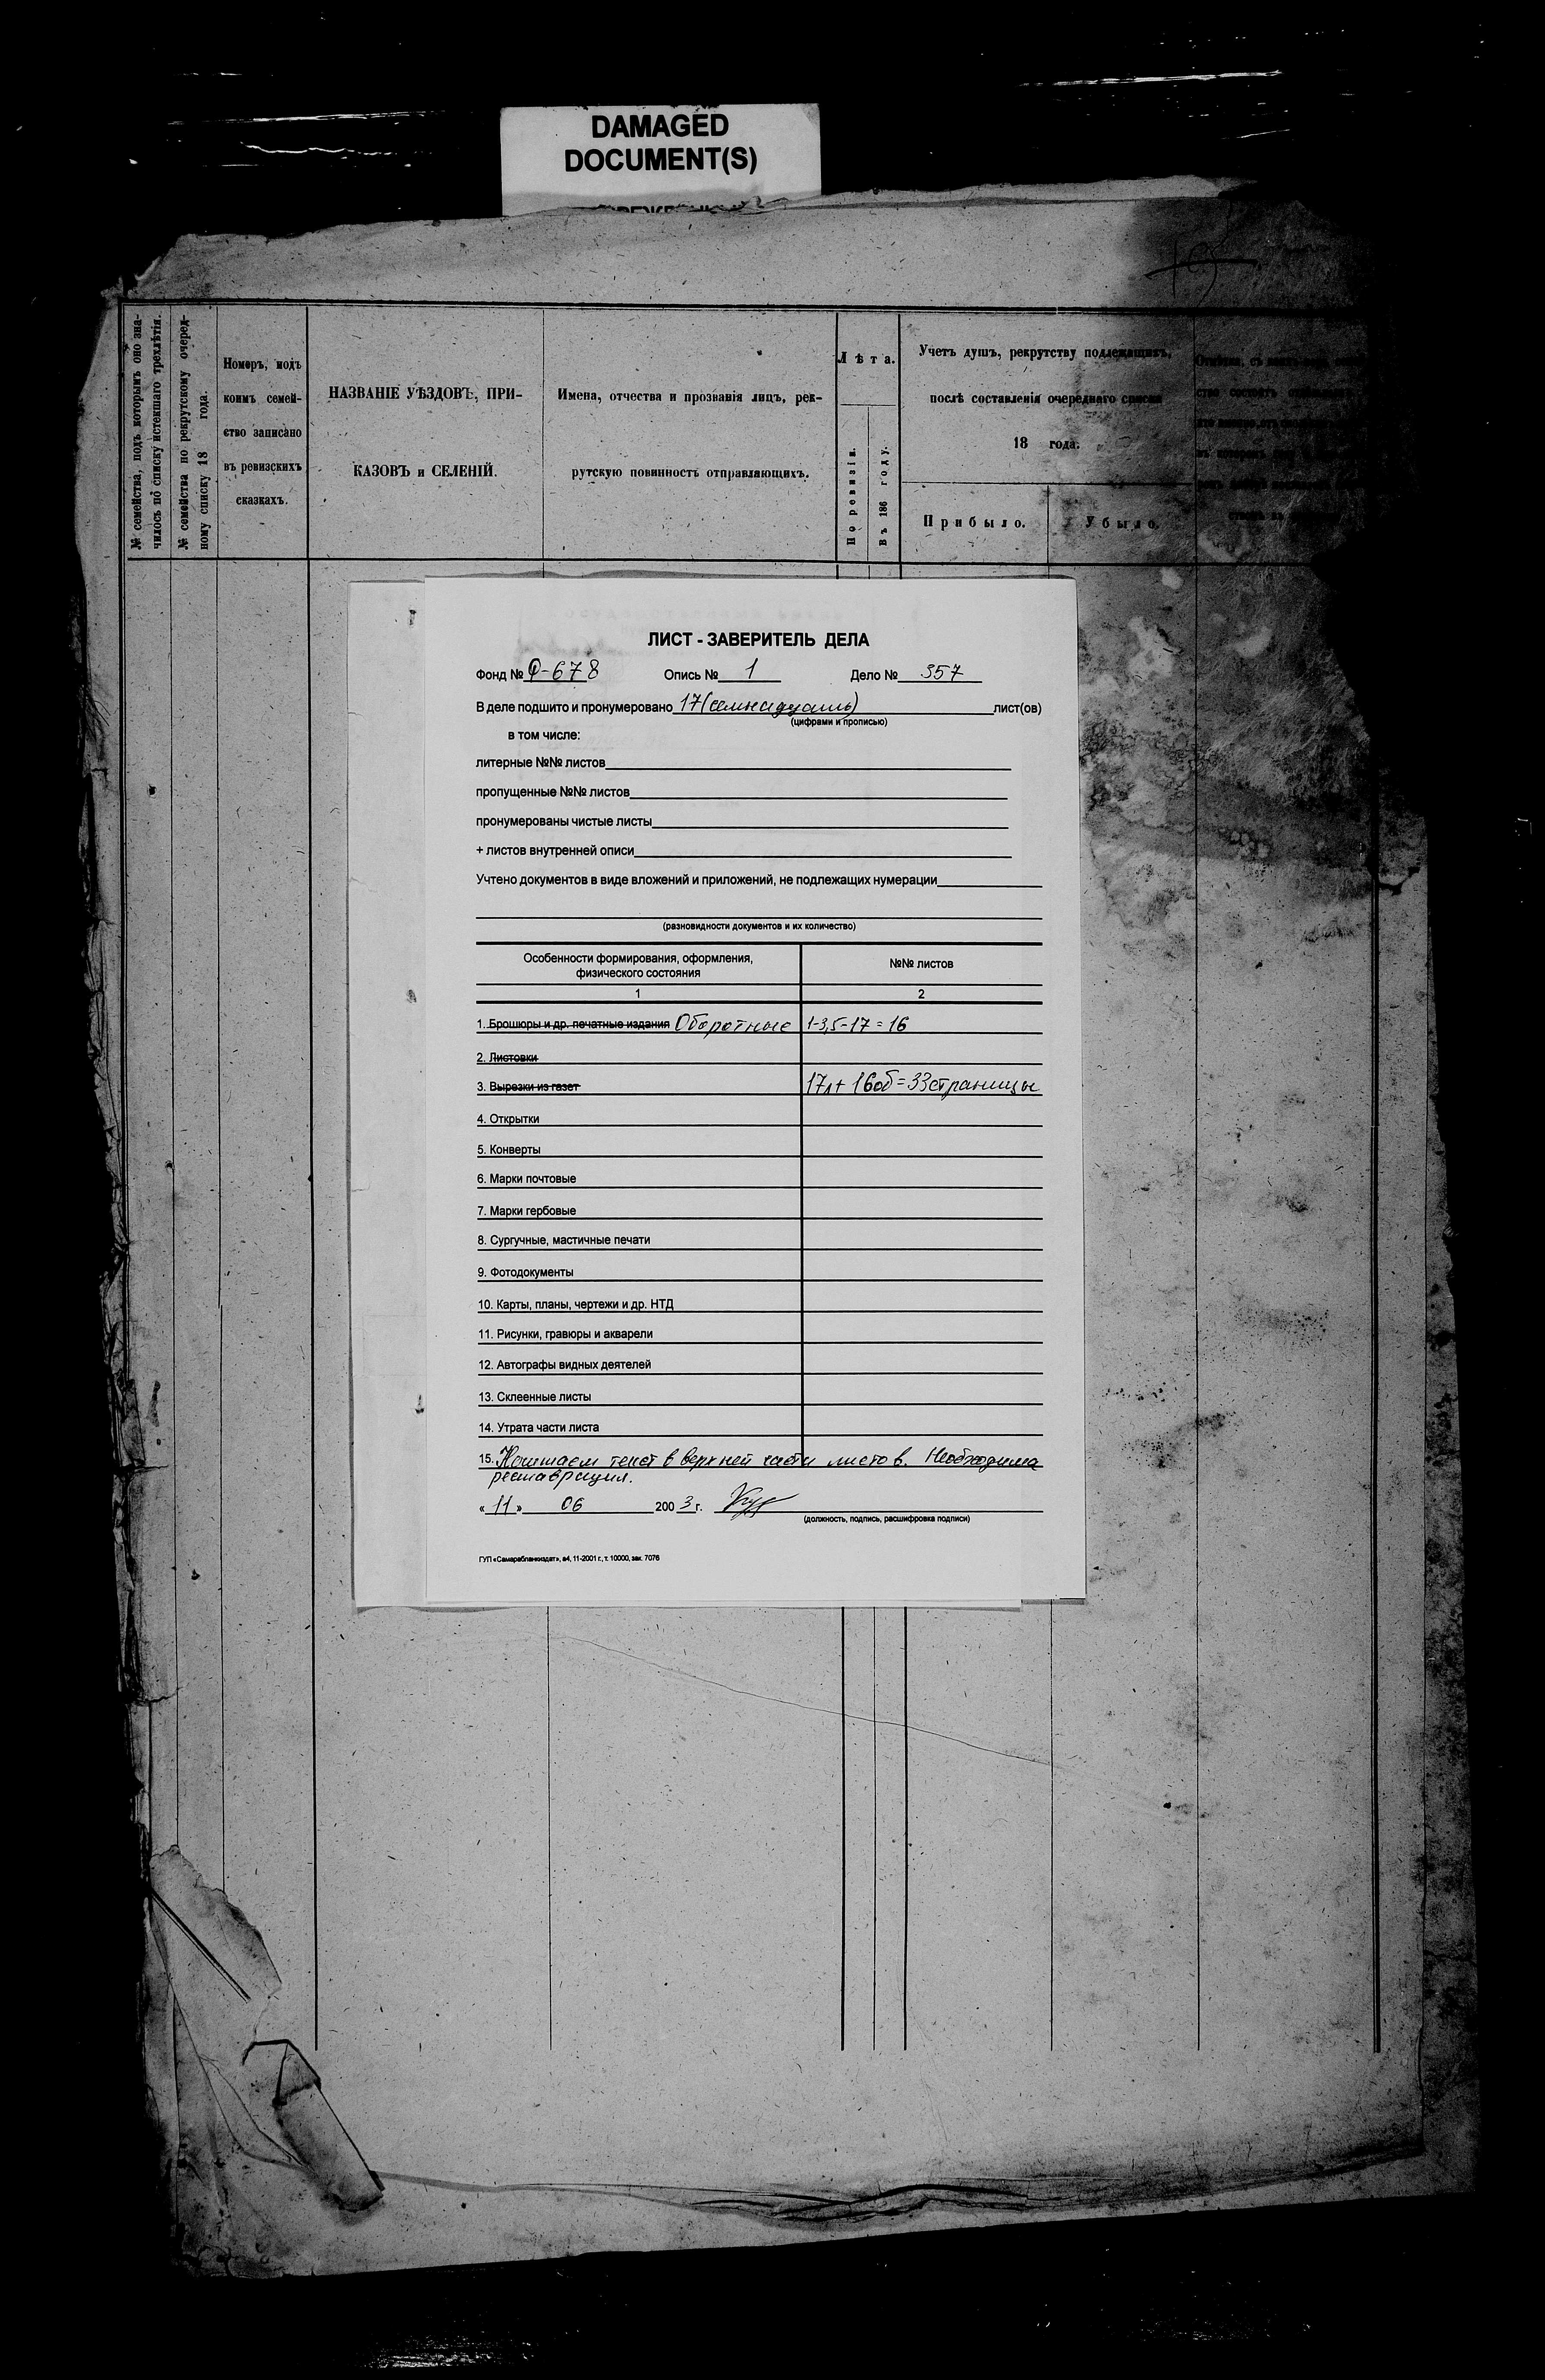 DAMAGED
DOCUMENT(S)
№ семейства, подъ которымъ оно зна-
чилось по списку истекшаго трехлѣтія.
№ семейства по рекрутскому очеред-
ному списку 18 года.
Номеръ, подъ
коимъ семей-
ство записано
въ ревизскихъ
сказкахъ.
НАЗВАНІЕ УѢЗДОВЪ, ПРИ-
КАЗОВЪ и СЕЛЕНІЙ.
Имена, отчества и прозванія лицъ, рек-
рутскую повинность отправляющихъ.
Лѣта.
По ревизіи.
Въ 186 году.
Учетъ душъ, рекрутству подлежащихъ,
послѣ составленія очереднаго списка
18 года.
Прибыло.
Убыло.
ЛИСТ - ЗАВЕРИТЕЛЬ ДЕЛА
Фонд № Ф-678 Опись № 1 Дело № 357
В деле подшито и пронумеровано 17 (семнадцать) лист(ов)
(цифрами и прописью)
в том числе:
литерные №№ листов
пропущенные №№ листов
пронумерованы чистые листы
+ листов внутренней описи
Учтено документов в виде вложений и приложений, не подлежащих нумерации
(разновидности документов и их количество)
Особенности формирования, оформления,
физического состояния
№№ листов
1 2
1. Брошюры и др. печатные издания Оборотные 1-3,5-17=16
2. Листовки
3. Вырезки из газет 17л+16об=33страницы
4. Открытки
5. Конверты
6. Марки почтовые
7. Марки гербовые
8. Сургучные, мастичные печати
9. Фотодокументы
10. Карты, планы, чертежи и др. НТД
11. Рисунки, гравюры и акварели
12. Автографы видных деятелей
13. Склеенные листы
14. Утрата части листа
15. текст в верхней части листов. Необходима
реставрация.
«11» 06 2003г.
(должность, подпись, расшифровка подписи)
ГУП «Самарабланкиздат», а4, 11-2001 г., т. 10000, зак. 7076